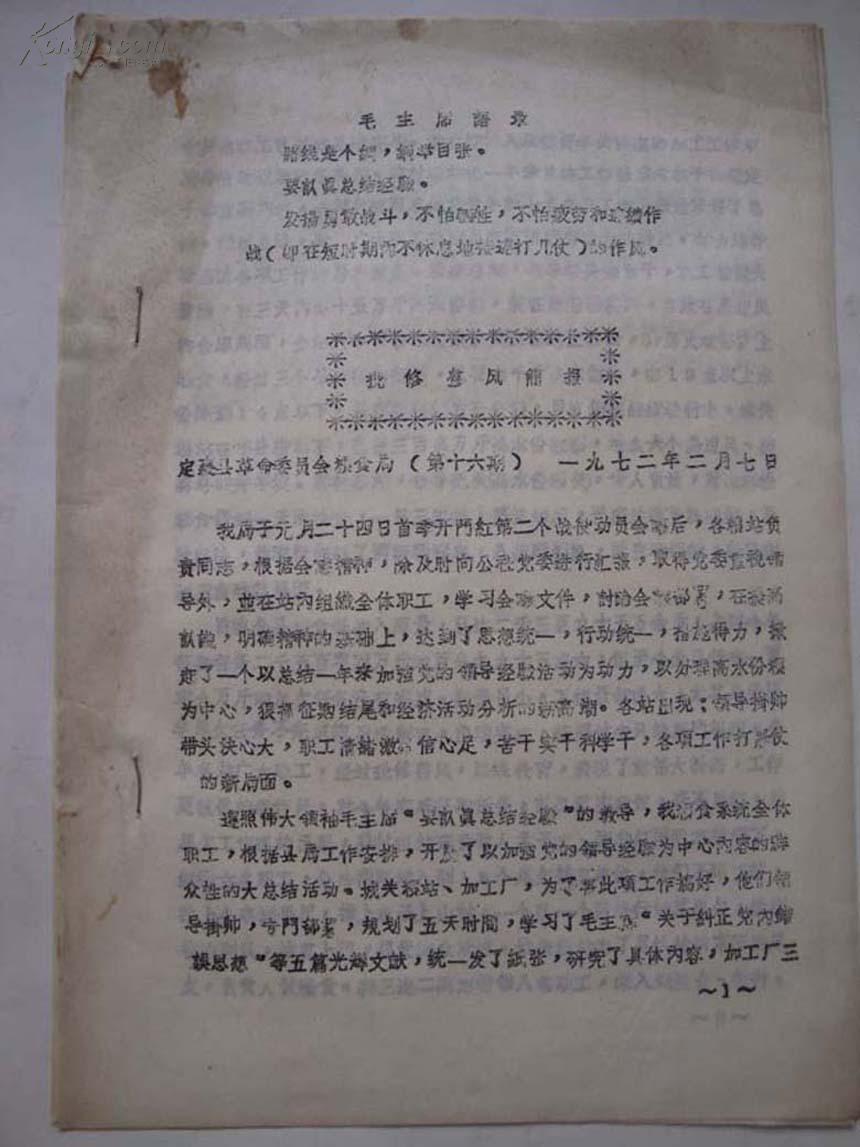 毛主席语录
路线是个綱，綱举目张。
要認眞总结经驗。
发扬勇敢战斗，不怕牺牲，不怕疲劳和连续作
战（即在短时期內不休息地接连打几仗）的作风。
批修整风简报
县革命委员会粮食局（第十六期） 一九七二年二月七日
我局于元月二十四日首季开門紅第二个战役动员会議后，各粮站负
責同志，根据会議精神，除及时向公社党委进行汇报，取得党委重视领
导外，並在站內组織全体职工，学习会議文件，討論会議部署，在提高
認識，明确精神的基础上，达到了思想统一，行动统一，措施得力，掀
起了一个以总结一年来加強党的领导经驗活动为动力，以处理高水份粮
为中心，狠抓征购结尾和经济活动分析的新高潮。各站出现：领导掛帅
带头决心大，职工情緒激 信心足，苦干实干科学干，各項工作打 仗
的新局面。
遵照伟大领袖毛主席“要認眞总结经驗”的教导，我 食系统全体
职工，根据县局工作安排，开展了以加強党的领导经驗为中心內容的群
众性的大总结活动。城关粮站、加工厂，为了把此項工作搞好，他们领
导掛帅，专門部署，规划了五天时間，学习了毛主席“关于糾正党內錯
誤思想”等五篇光辉文献，统一发了紙张，研究了具体內容，加工厂三
～1～